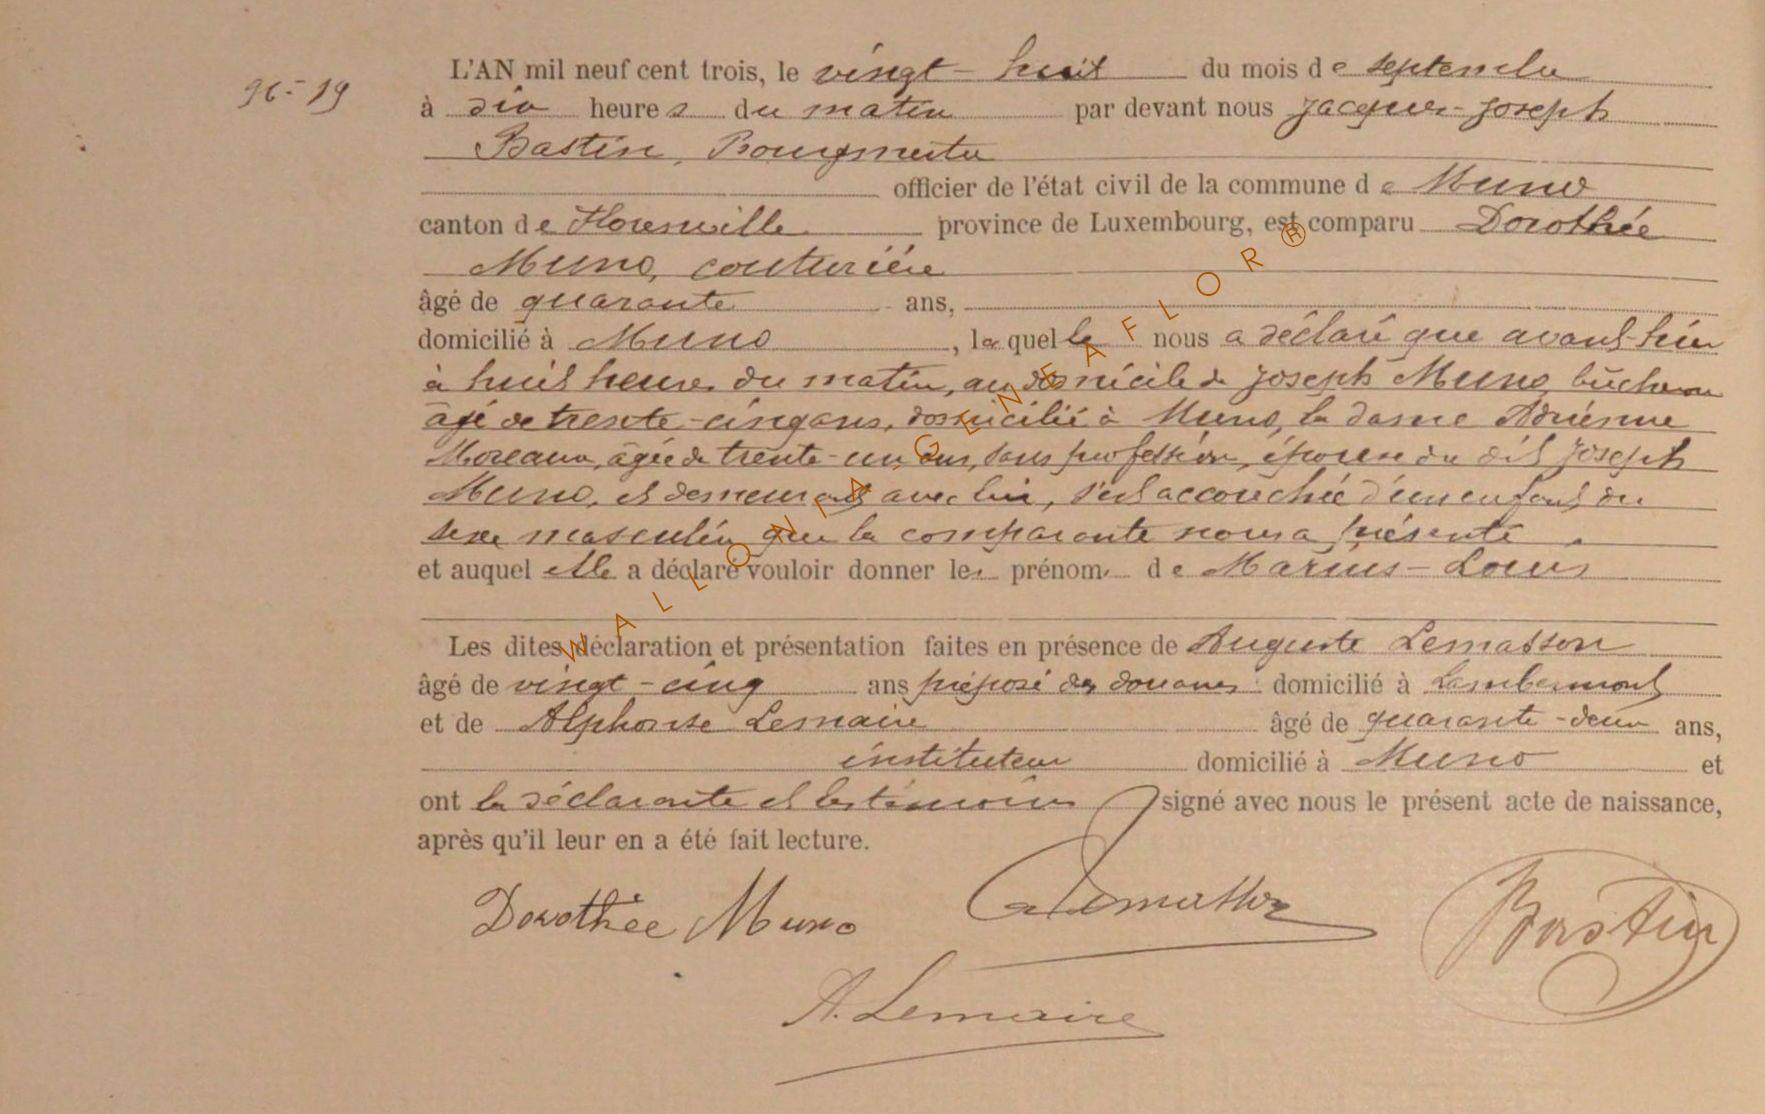 L'AN mil neuf cent trois, le vingt-huit du mois de septembre
96-19
à dix heures du matin par devant nous Jacques-Joseph
Bastin, Bourgmestre
officier de l'état civil de la commune de Muno
canton de Florenville province de Luxembourg, est comparu Dorothée
Muno, couturière
âgé de quarante ans,
domicilié à Muno, laquelle nous a déclaré que avant-hier
à huit heures du matin, au domicile de Joseph Muno, bûcheron
âgé de trente-cinq ans, domicilié à Muno, la dame Adrienne
Moreaux, âgée de trente-un ans, sans profession, épouse du dit Joseph
Muno, et demeurant avec lui, s'est accouchée d'un enfant du
sexe masculin que la comparante nous a présenté
et auquel elle a déclaré vouloir donner les prénoms de Marius-Louis
Les dites déclaration et présentation faites en présence de Auguste Lemasson
âgé de vingt-cinq ans préposé des douanes domicilié à Lambermont
et de Alphonse Lemaire âgé de quarante-deux ans,
instituteur domicilié à Muno et
ont la déclarante et les témoins signé avec nous le présent acte de naissance,
après qu'il leur en a été fait lecture.
Dorothée Muno Lemasson Bastin
A. Lemaire
WALLONIA GENEAFLOR®